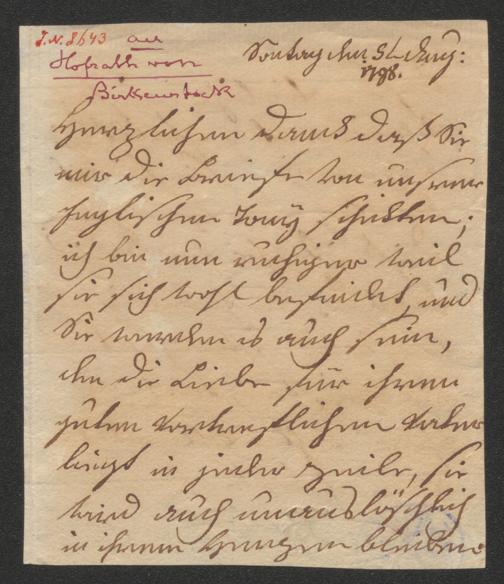 J.N. 8643 an
Hofrath von
Birkenstock
Sontag den 5t Aug:
1798.
Herzlichen Dank daß Sie
mir die Briefe von unsrer
englischen Tony schikten;
ich bin nun ruhiger weil
sie sich wohl befindet, und
Sie werden es auch sein,
den die Liebe für ihren
guten vortreflichen Vater
liegt in jeder Zeile, sie
wird auch unauslöschlich
in ihrem Herzen bleiben